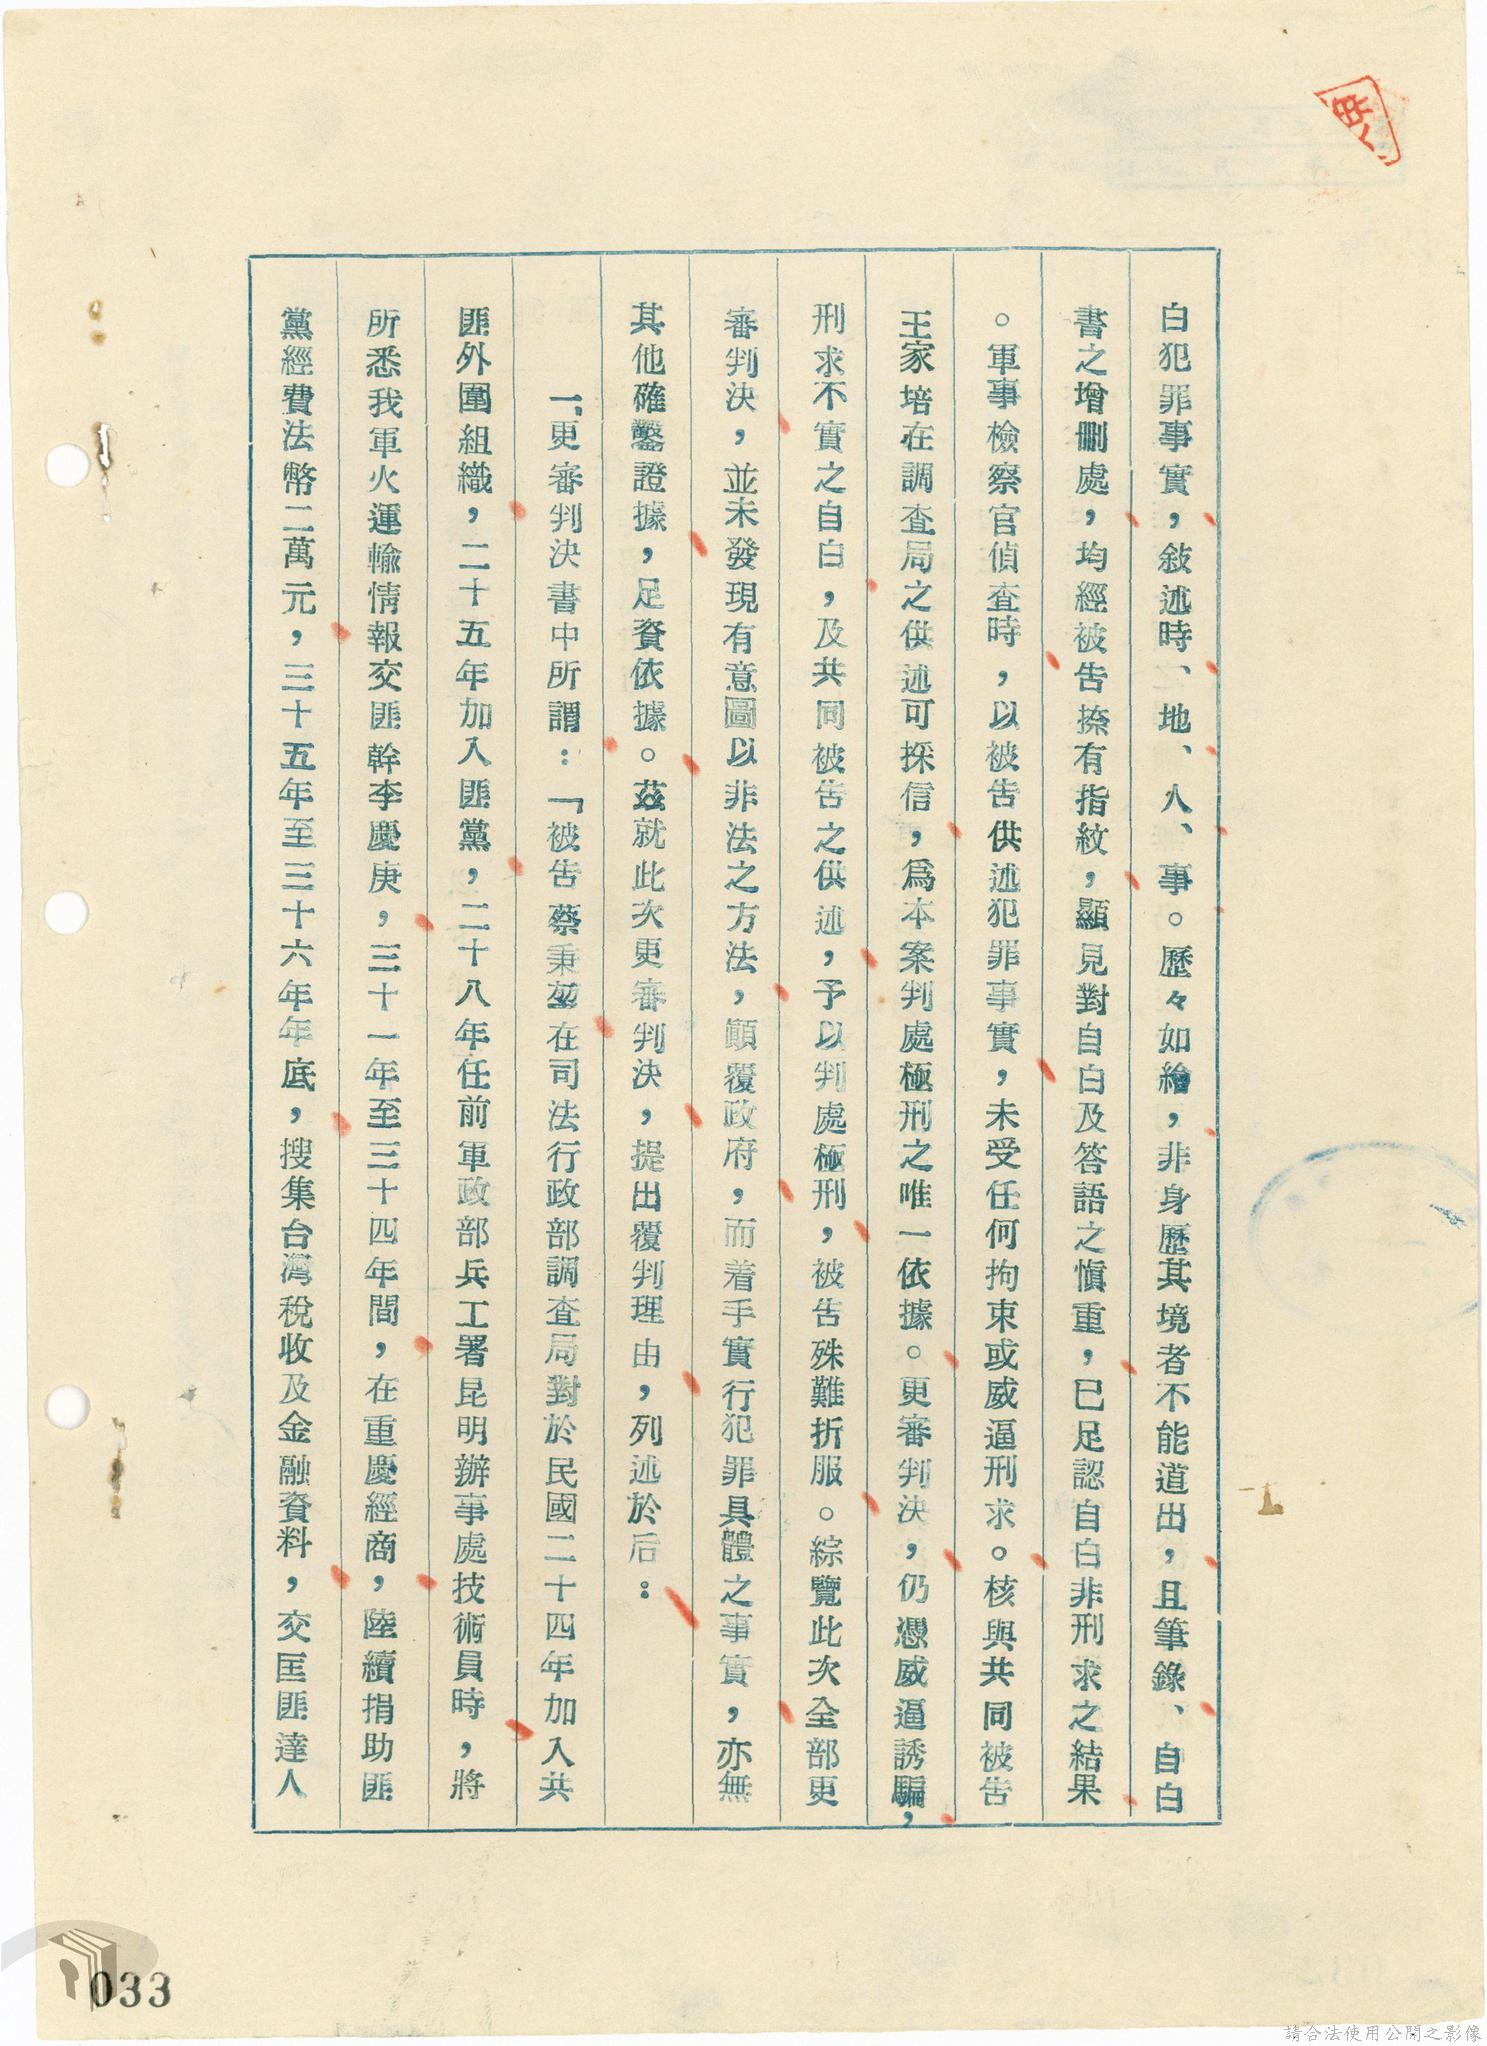 白犯罪事實，敍述時、地、人、事。歷々如繪，非身歷其境者不能道出，且筆錄、自白
書之增刪處，均經被告捺有指紋，顯見對自白及答語之慎重，已足認自白非刑求之結果
。軍事檢察官偵查時，以被告供述犯罪事實，未受任何拘束或威逼刑求。核與共同被告
王家培在調查局之供述可採信，爲本案判處極刑之唯一依據。更審判決，仍憑威逼誘騙，
刑求不實之自白，及共同被告之供述，予以判處極刑，被告殊難折服。綜覽此次全部更
審判決，並未發現有意圖以非法之方法，顚覆政府，而着手實行犯罪具體之事實，亦無
其他確鑿證據，足資依據。茲就此次更審判決，提出覆判理由，列述於后：
一、更審判決書中所謂：「被告蔡秉堃在司法行政部調查局對於民國二十四年加入共
匪外圍組織，二十五年加入匪黨，二十八年任前軍政部兵工署昆明辦事處技術員時，將
所悉我軍火運輸情報交匪幹李慶庚，三十一年至三十四年間，在重慶經商，陸續捐助匪
黨經費法幣二萬元，三十五年至三十六年年底，搜集台灣稅收及金融資料，交匡匪達人
033
請合法使用公開之影像